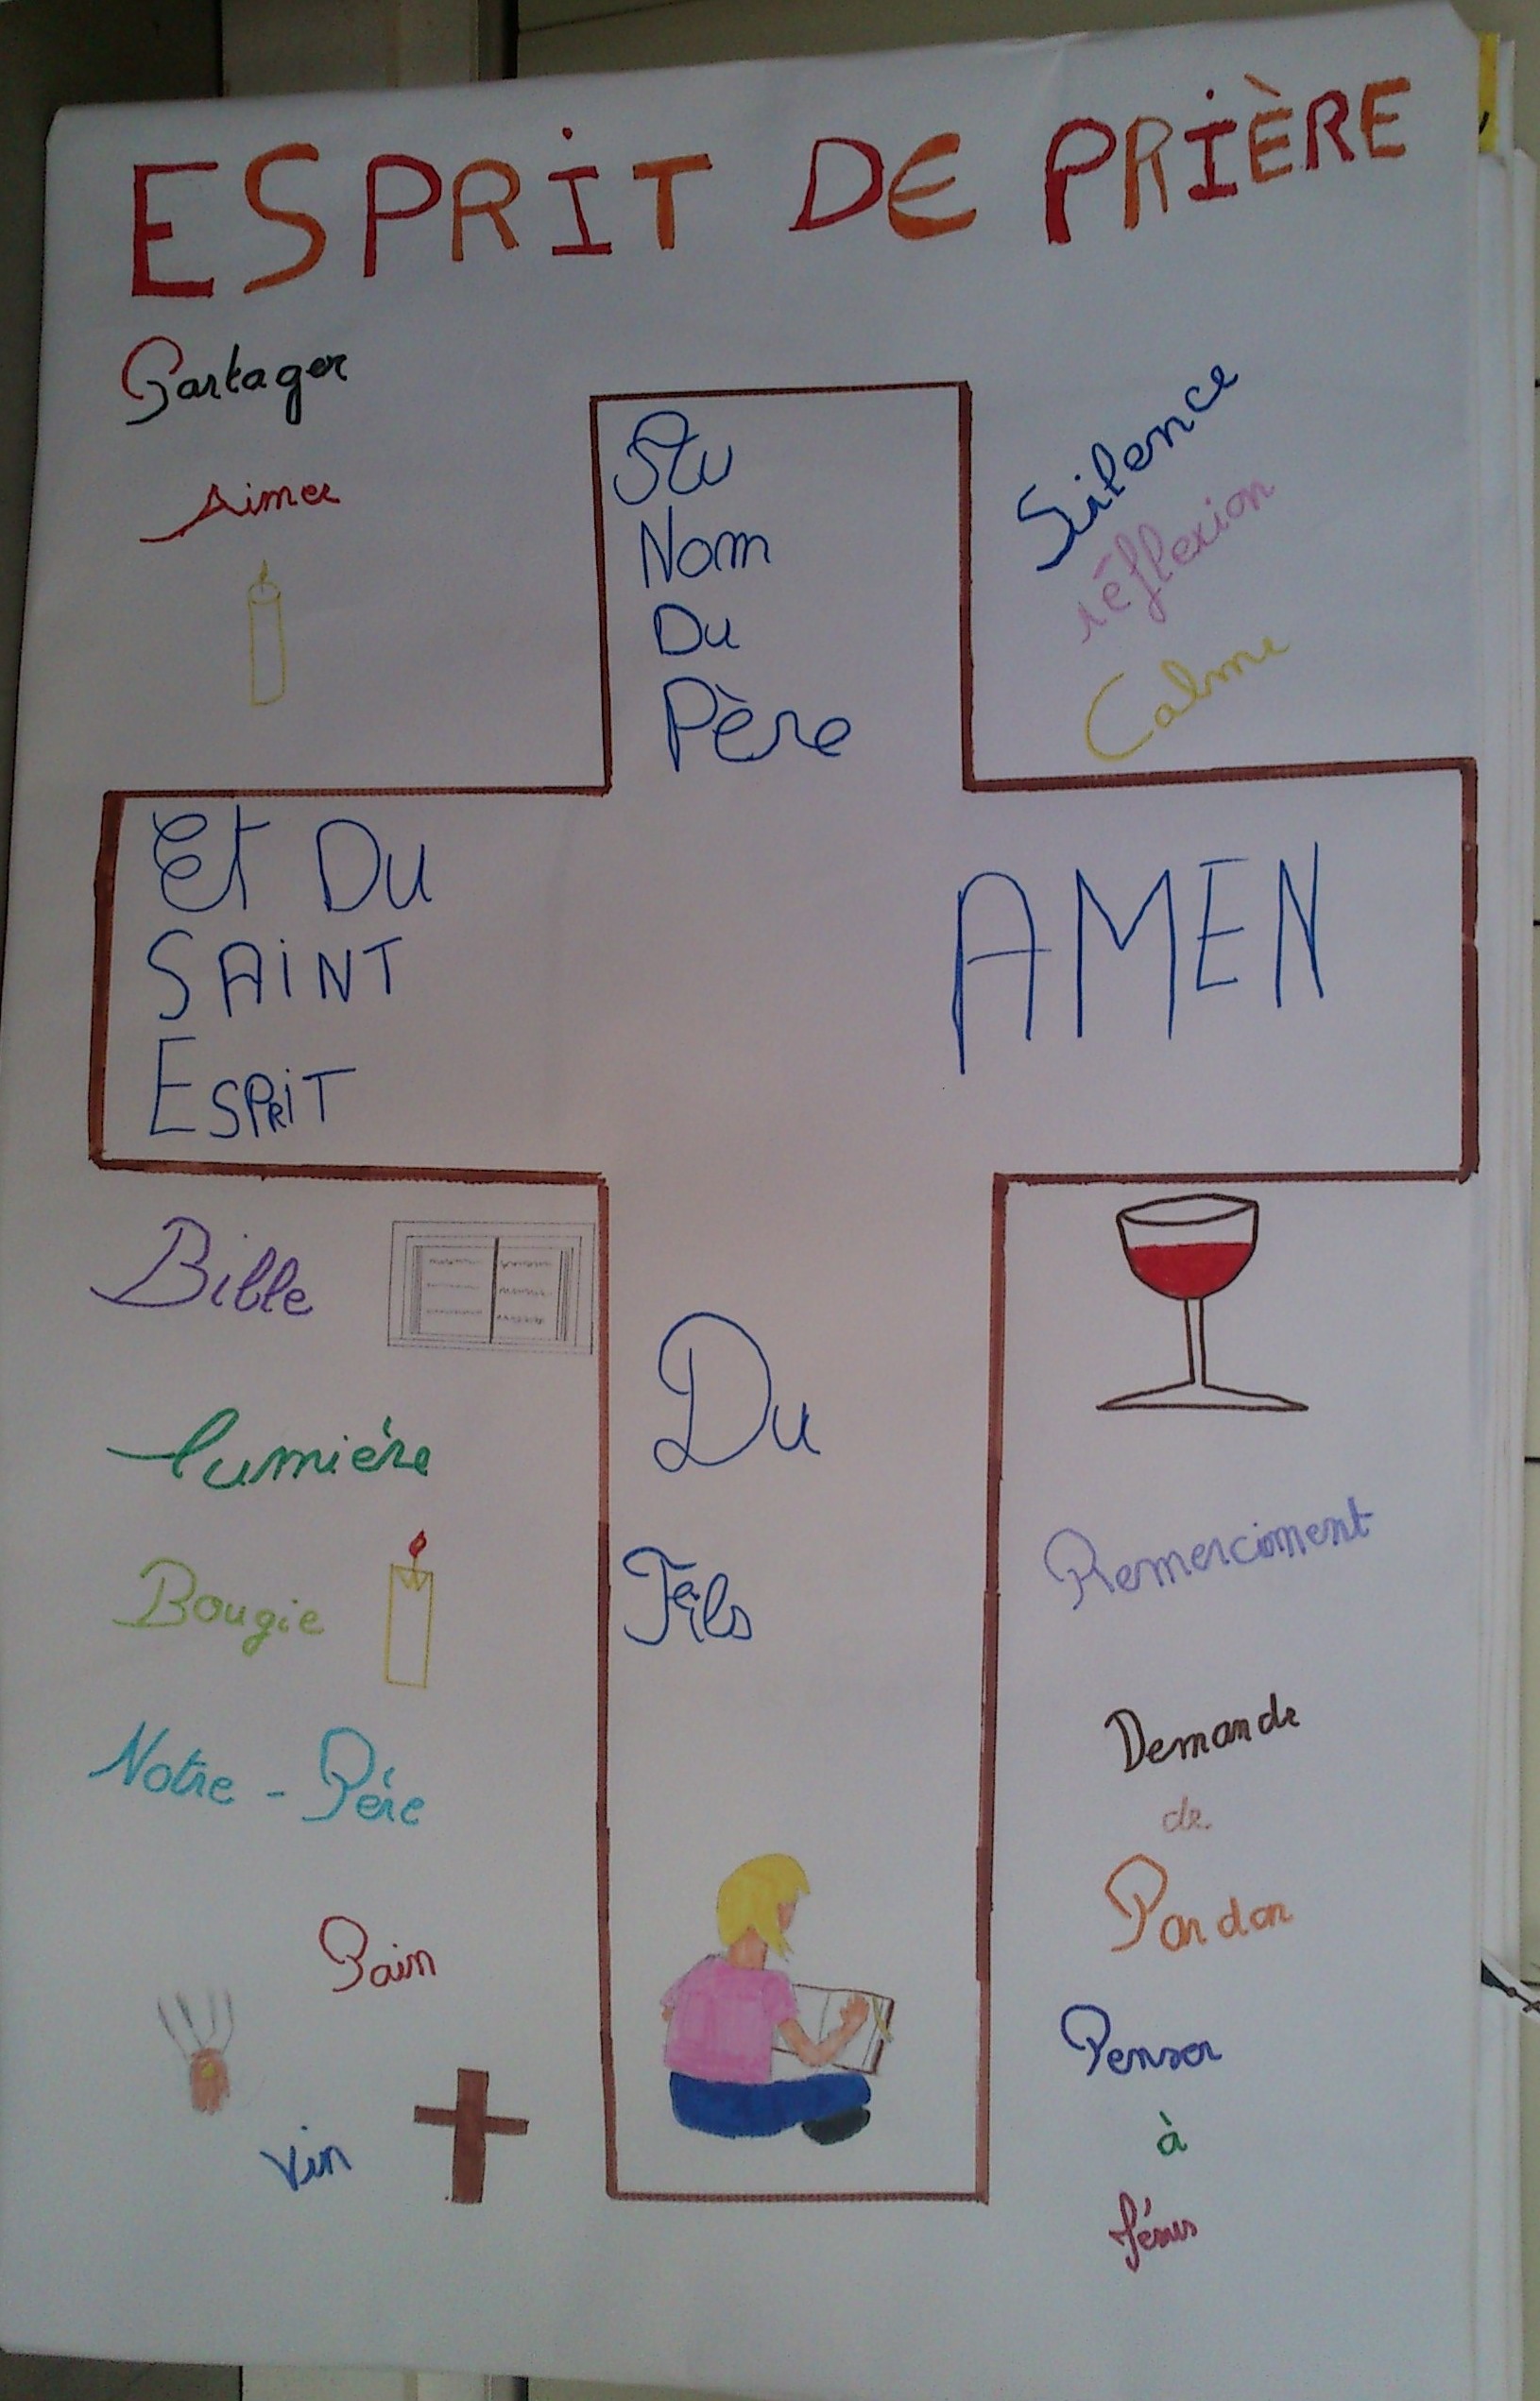 ESPRiT DE PRIÈRE
Partager
Aimer
Au
Nom
Du
Père
Silence
réflexion
Calme
Et Du
SAiNT
ESPRiT
AMEN
Bible
lumière
Bougie
Notre - Père
Pain
Vin
Du
Fils
Remerciment
Demande
de
Pardon
Penser
à
Jésus